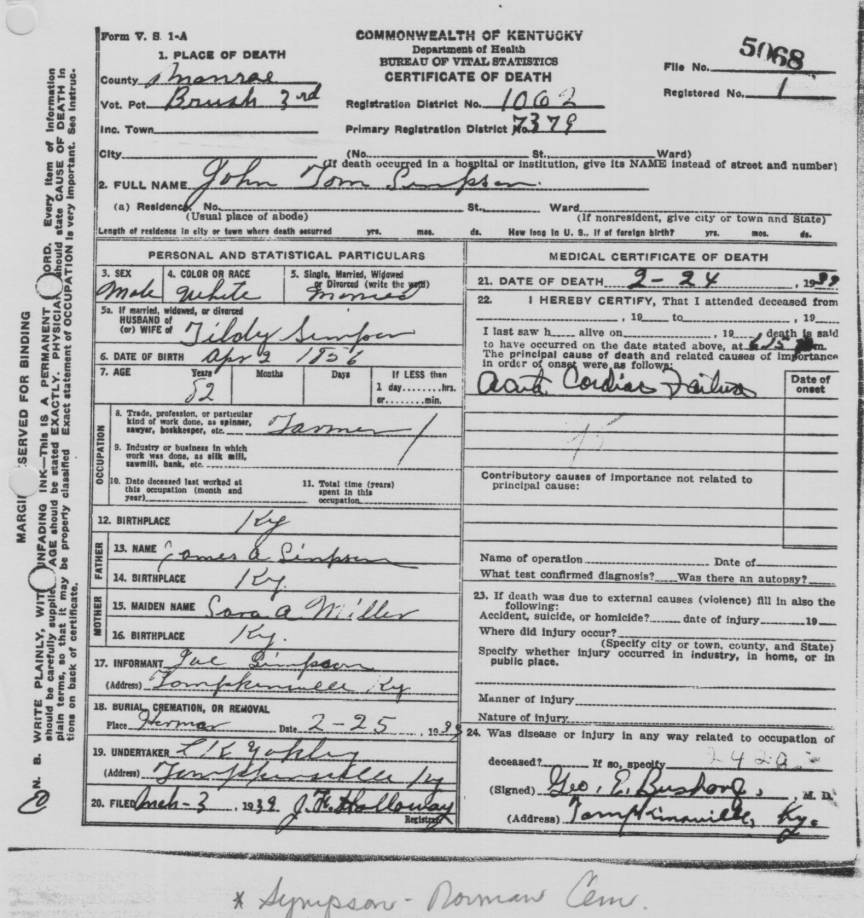 Form V. S. 1-A
COMMONWEALTH OF KENTUCKY
Department of Health
BUREAU OF VITAL STATISTICS
CERTIFICATE OF DEATH
File No. 5068
Registered No. 1
1. PLACE OF DEATH
County Monroe
Vot. Pct. Brush 3rd
Registration District No. 1062
Inc. Town
Primary Registration District No. 7379
City (No. St. Ward)
(If death occurred in a hospital or institution, give its NAME instead of street and number)
2. FULL NAME John Tom Simpson.
(a) Residence, No. St., Ward
(Usual place of abode) (If nonresident, give city or town and State)
Length of residence in city or town where death occurred yrs. mos. ds. How long in U. S., if of foreign birth? yrs. mos. ds.
PERSONAL AND STATISTICAL PARTICULARS
3. SEX 4. COLOR OR RACE 5. Single, Married, Widowed
or Divorced (write the word)
Male White Married
5a. If married, widowed, or divorced
HUSBAND of
(or) WIFE of Tildy Simpson
6. DATE OF BIRTH Apr 2 1856
7. AGE Years Months Days If LESS than
1 day........hrs.
or........min.
82
OCCUPATION
8. Trade, profession, or particular
kind of work done, as spinner,
sawyer, bookkeeper, etc. Farmer
9. Industry or business in which
work was done, as silk mill,
sawmill, bank, etc.
10. Date deceased last worked at
this occupation (month and
year)
11. Total time (years)
spent in this
occupation
12. BIRTHPLACE Ky
FATHER
13. NAME James A Simpson
14. BIRTHPLACE Ky.
MOTHER
15. MAIDEN NAME Sara A Miller
16. BIRTHPLACE Ky.
17. INFORMANT Joe Simpson
(Address) Tompkinsville Ky
18. BURIAL, CREMATION, OR REMOVAL
Place Date 2-25, 1939
19. UNDERTAKER
(Address) Tompkinsville Ky
20. FILED Mch-3, 1939 J. F. Holloway
Registrar
MEDICAL CERTIFICATE OF DEATH
21. DATE OF DEATH 2-24, 1939
22. I HEREBY CERTIFY, That I attended deceased from
, 19 to , 19
I last saw h alive on , 19 death is said
to have occurred on the date stated above, at m.
The principal cause of death and related causes of importance
in order of onset were as follows:
Date of
onset
Acute Cardiac Failure
Contributory causes of importance not related to
principal cause:
Name of operation Date of
What test confirmed diagnosis? Was there an autopsy?
23. If death was due to external causes (violence) fill in also the
following:
Accident, suicide, or homicide? date of injury 19
Where did injury occur?
(Specify city or town, county, and State)
Specify whether injury occurred in industry, in home, or in
public place.
Manner of injury
Nature of injury
24. Was disease or injury in any way related to occupation of
deceased? If so, specify
(Signed) Geo. E. Bushong, M. D.
(Address) Tompkinsville, Ky.
MARGIN RESERVED FOR BINDING
N. B. WRITE PLAINLY, WITH UNFADING INK—This IS A PERMANENT RECORD. Every item of information
should be carefully supplied. AGE should be stated EXACTLY. PHYSICIANS should state CAUSE OF DEATH in
plain terms, so that it may be properly classified Exact statement of OCCUPATION is very important. See instruc-
tions on back of certificate.
* Sympson - Norman Cem.